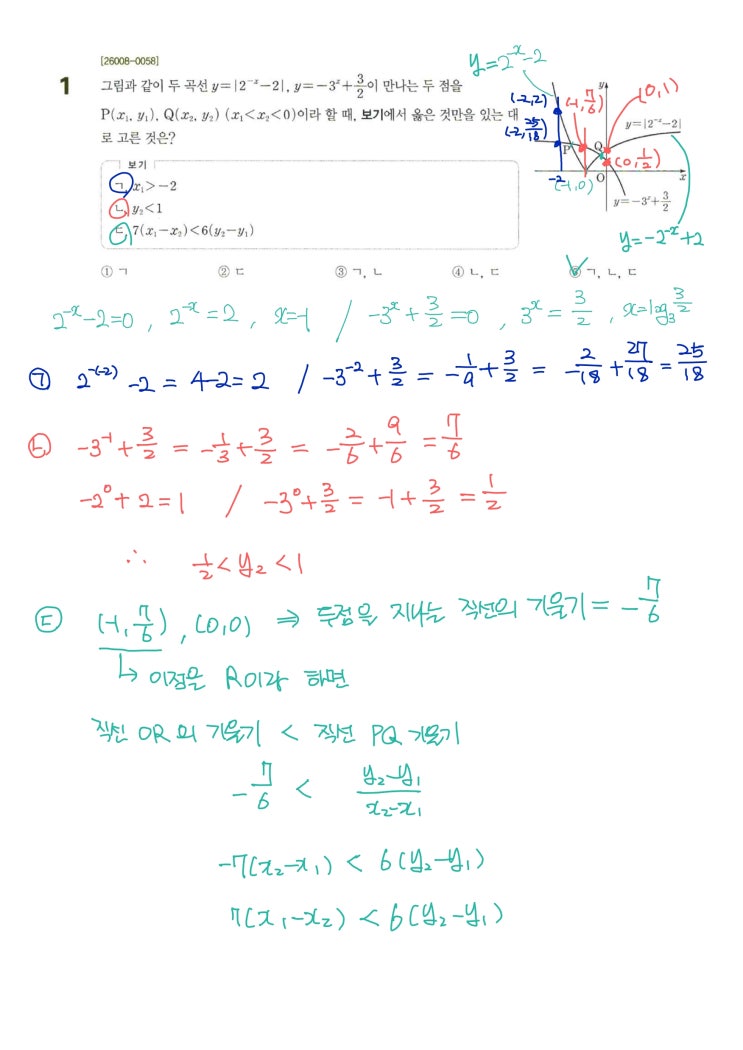 [26008-0058]
1 그림과 같이 두 곡선 y=|2^{-x}-2|, y=-3^x+\frac{3}{2}이 만나는 두 점을
P(x₁, y₁), Q(x₂, y₂) (x₁<x₂<0)이라 할 때, 보기에서 옳은 것만을 있는 대
로 고른 것은?
보기
ㄱ. x₁>-2
ㄴ. y₂<1
ㄷ. 7(x₁-x₂)<6(y₂-y₁)
① ㄱ ② ㄷ ③ ㄱ, ㄴ ④ ㄴ, ㄷ ⑤ ㄱ, ㄴ, ㄷ
y=2^{-x}-2
(-2,2)
(-1, \frac{7}{6})
(0,1)
y
y=|2^{-x}-2|
(-2, \frac{25}{18})
P
Q
(0, \frac{1}{2})
-2
(-1,0)
O
x
y=-3^x+\frac{3}{2}
y=-2^{-x}+2
2^{-x}-2=0 , 2^{-x}=2 , x=-1 / -3^x+\frac{3}{2}=0 , 3^x=\frac{3}{2} , x=log_3\frac{3}{2}
ㄱ 2^{-(-2)}-2=4-2=2 / -3^{-2}+\frac{3}{2}=-\frac{1}{9}+\frac{3}{2}=-\frac{2}{18}+\frac{27}{18}=\frac{25}{18}
ㄴ -3^{-1}+\frac{3}{2}=-\frac{1}{3}+\frac{3}{2}=-\frac{2}{6}+\frac{9}{6}=\frac{7}{6}
-2^0+2=1 / -3^0+\frac{3}{2}=-1+\frac{3}{2}=\frac{1}{2}
∴ \frac{1}{2}<y₂<1
ㄷ (-1, \frac{7}{6}), (0,0) ⇒ 두점을 지나는 직선의 기울기=-\frac{7}{6}
↳ 이점을 R이라 하면
직선 OR의 기울기 < 직선 PQ 기울기
-\frac{7}{6} < \frac{y₂-y₁}{x₂-x₁}
-7(x₂-x₁) < 6(y₂-y₁)
7(x₁-x₂) < 6(y₂-y₁)